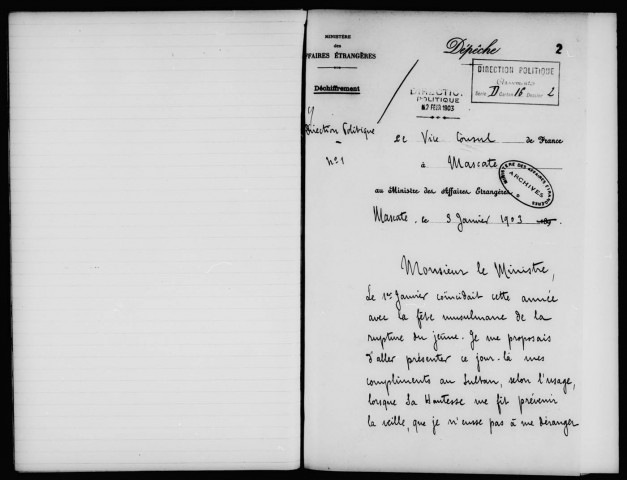 MINISTÈRE
des
FFAIRES ÉTRANGÈRES
Déchiffrement
Direction Politique
N° 1
Dépêche
2
DIRECTION POLITIQUE
Série D Carton 16 Dossier 2
DIRECTION
POLITIQUE
2 FEVR 1903
Le Vice Consul de France
à Mascate
au Ministre des Affaires Etrangères
MINISTÈRE DES AFFAIRES ETRANGÈRES
ARCHIVES
Mascate, le 3 Janvier 1903 189
Monsieur le Ministre,
Le 1er Janvier coïncidait cette année
avec la fête musulmane de la
rupture du jeûne. Je me proposais
d'aller présenter ce jour-là mes
compliments au Sultan, selon l'usage,
lorsque Sa Hautesse me fit prévenir
la veille, que je n'eusse pas à me déranger